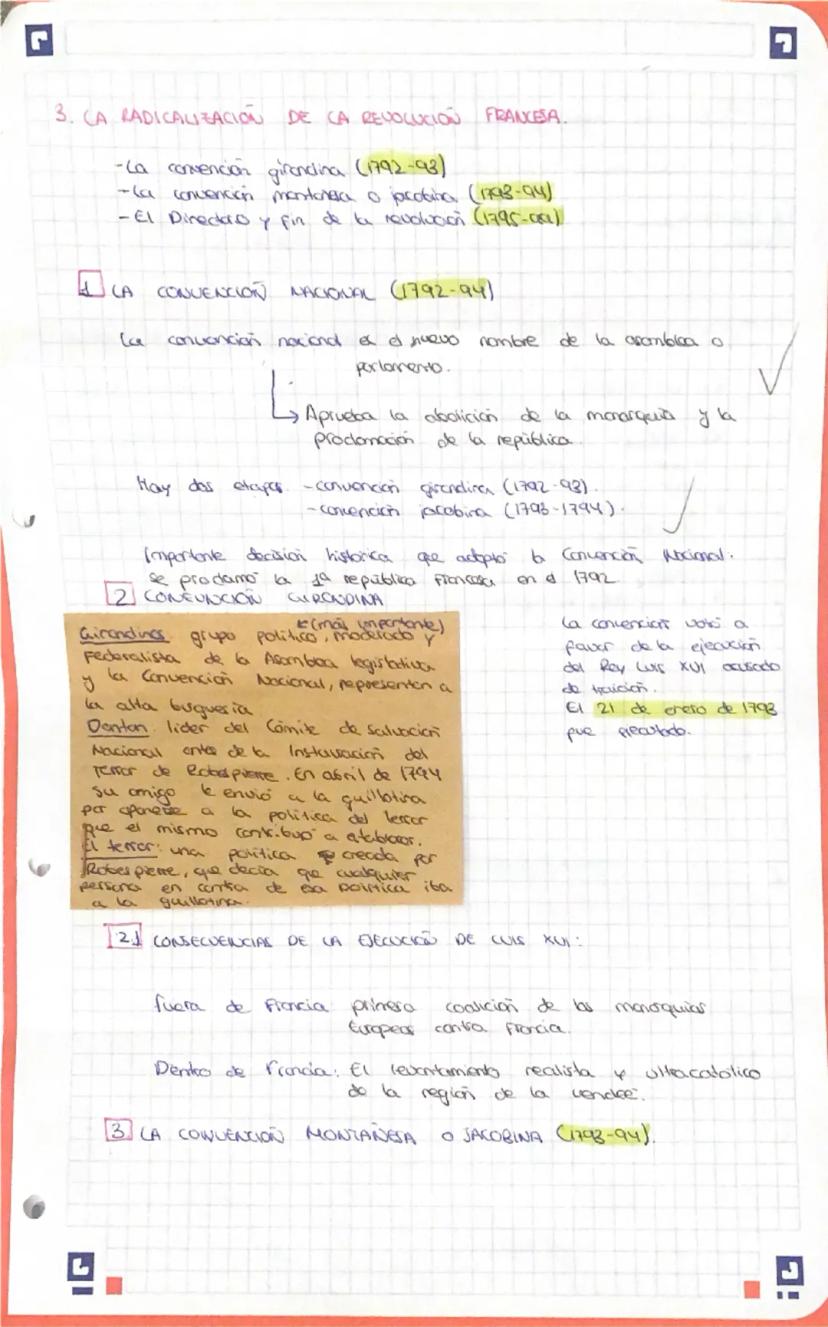 3. LA RADICALIZACIÓN DE LA REVOLUCIÓN FRANCESA.
-La convención girondina (1792-93)
-La convención montañesa o jacobina (1793-94)
-El Directorio y fin de la revolución (1795-99)
1 LA CONVENCIÓN NACIONAL (1792-94)
La convención nacional es el nuevo nombre de la asamblea o
parlamento.
↳ Aprueba la abolición de la monarquía y la
proclamación de la república.
Hay dos etapas. -convención girondina (1792-93).
-convención jacobina (1793-1794).
Importante decisión histórica que adoptó la Convención Nacional:
se proclamó la 1ª república Francesa en el 1792
2 CONVENCIÓN GIRONDINA
Girondinos grupo político, moderado y (más importante)
Federalista de la Asamblea legislativa
y la Convención Nacional, representan a
la alta burguesía
Danton. líder del Cómite de Salvación
Nacional antes de la Instauración del
Terror de Robespierre. En abril de 1794
su amigo le envió a la guillotina
por oponerse a la política del terror
que el mismo contribuyó a establecer.
El terror: una política creada por
Robespierre, que decía que cualquier
persona en contra de esa política iba
a la guillotina.
La convención votó a
favor de la ejecución
del Rey Luis XVI acusado
de traición.
El 21 de enero de 1793
fue ejecutado.
2.1 CONSECUENCIAS DE LA EJECUCIÓN DE LUIS XVI:
fuera de Francia: primera coalición de las monarquías
Europeas contra Francia.
Dentro de Francia: El levantamiento realista y ultracatólico
de la región de la vendée.
3. LA CONVENCIÓN MONTAÑESA O JACOBINA (1793-94).